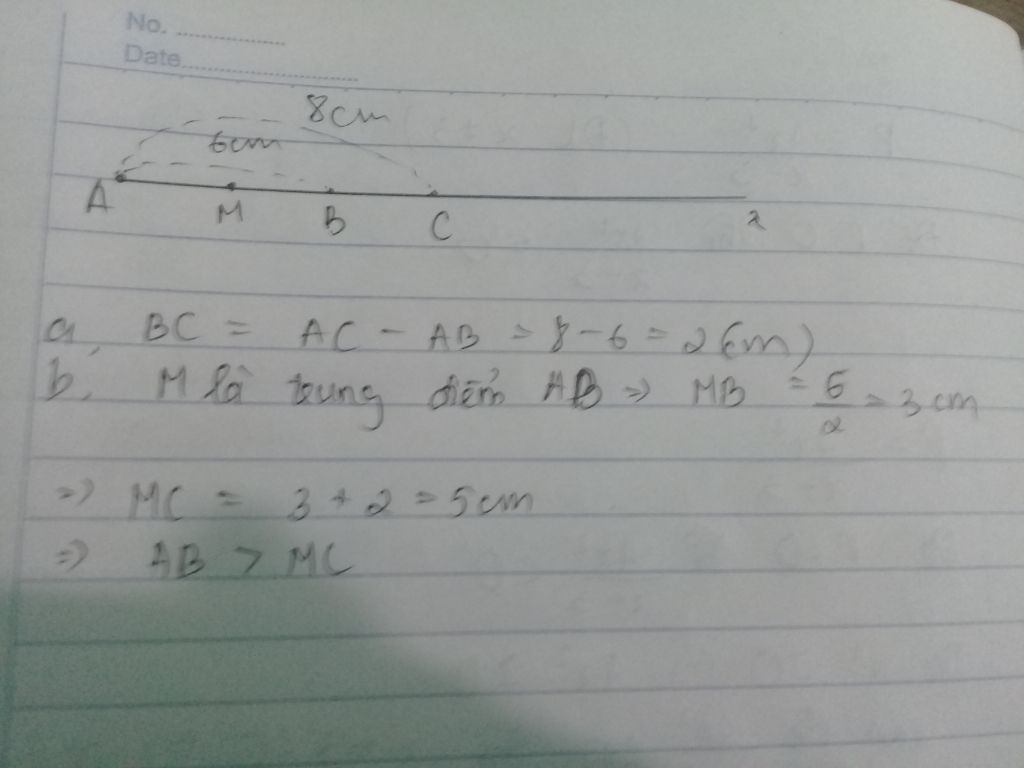 No. ..................
Date..................................
8cm
6cm
A M B C x
a, BC = AC - AB = 8 - 6 = 2(cm)
b, M là trung điểm AB => MB = 6/2 = 3 cm
=> MC = 3 + 2 = 5cm
=> AB > MC